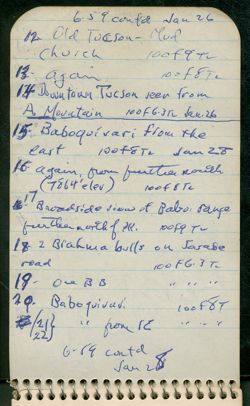 6-59 contd Jan 26
12 Old Tucson - Mud
Church 100 F9 TL
13- again 100 F8 TL
14 Downtown Tucson seen from
A Mountain 100 F6.3 TL Jan 26
15- Baboquivari from the
east 100 F8 TL Jan 28
16 again, from further north
elev) 100 F8 TL
17 Broadside view of Babo. range
further north 100 F9 TL
18 2 Brahma bulls on Sasabe
road 100 F6.3 TL
19- One BB " " "
20- Baboquivari 100 F8 T
21 } " from SE " "
22 }
6-59 contd
Jan 28